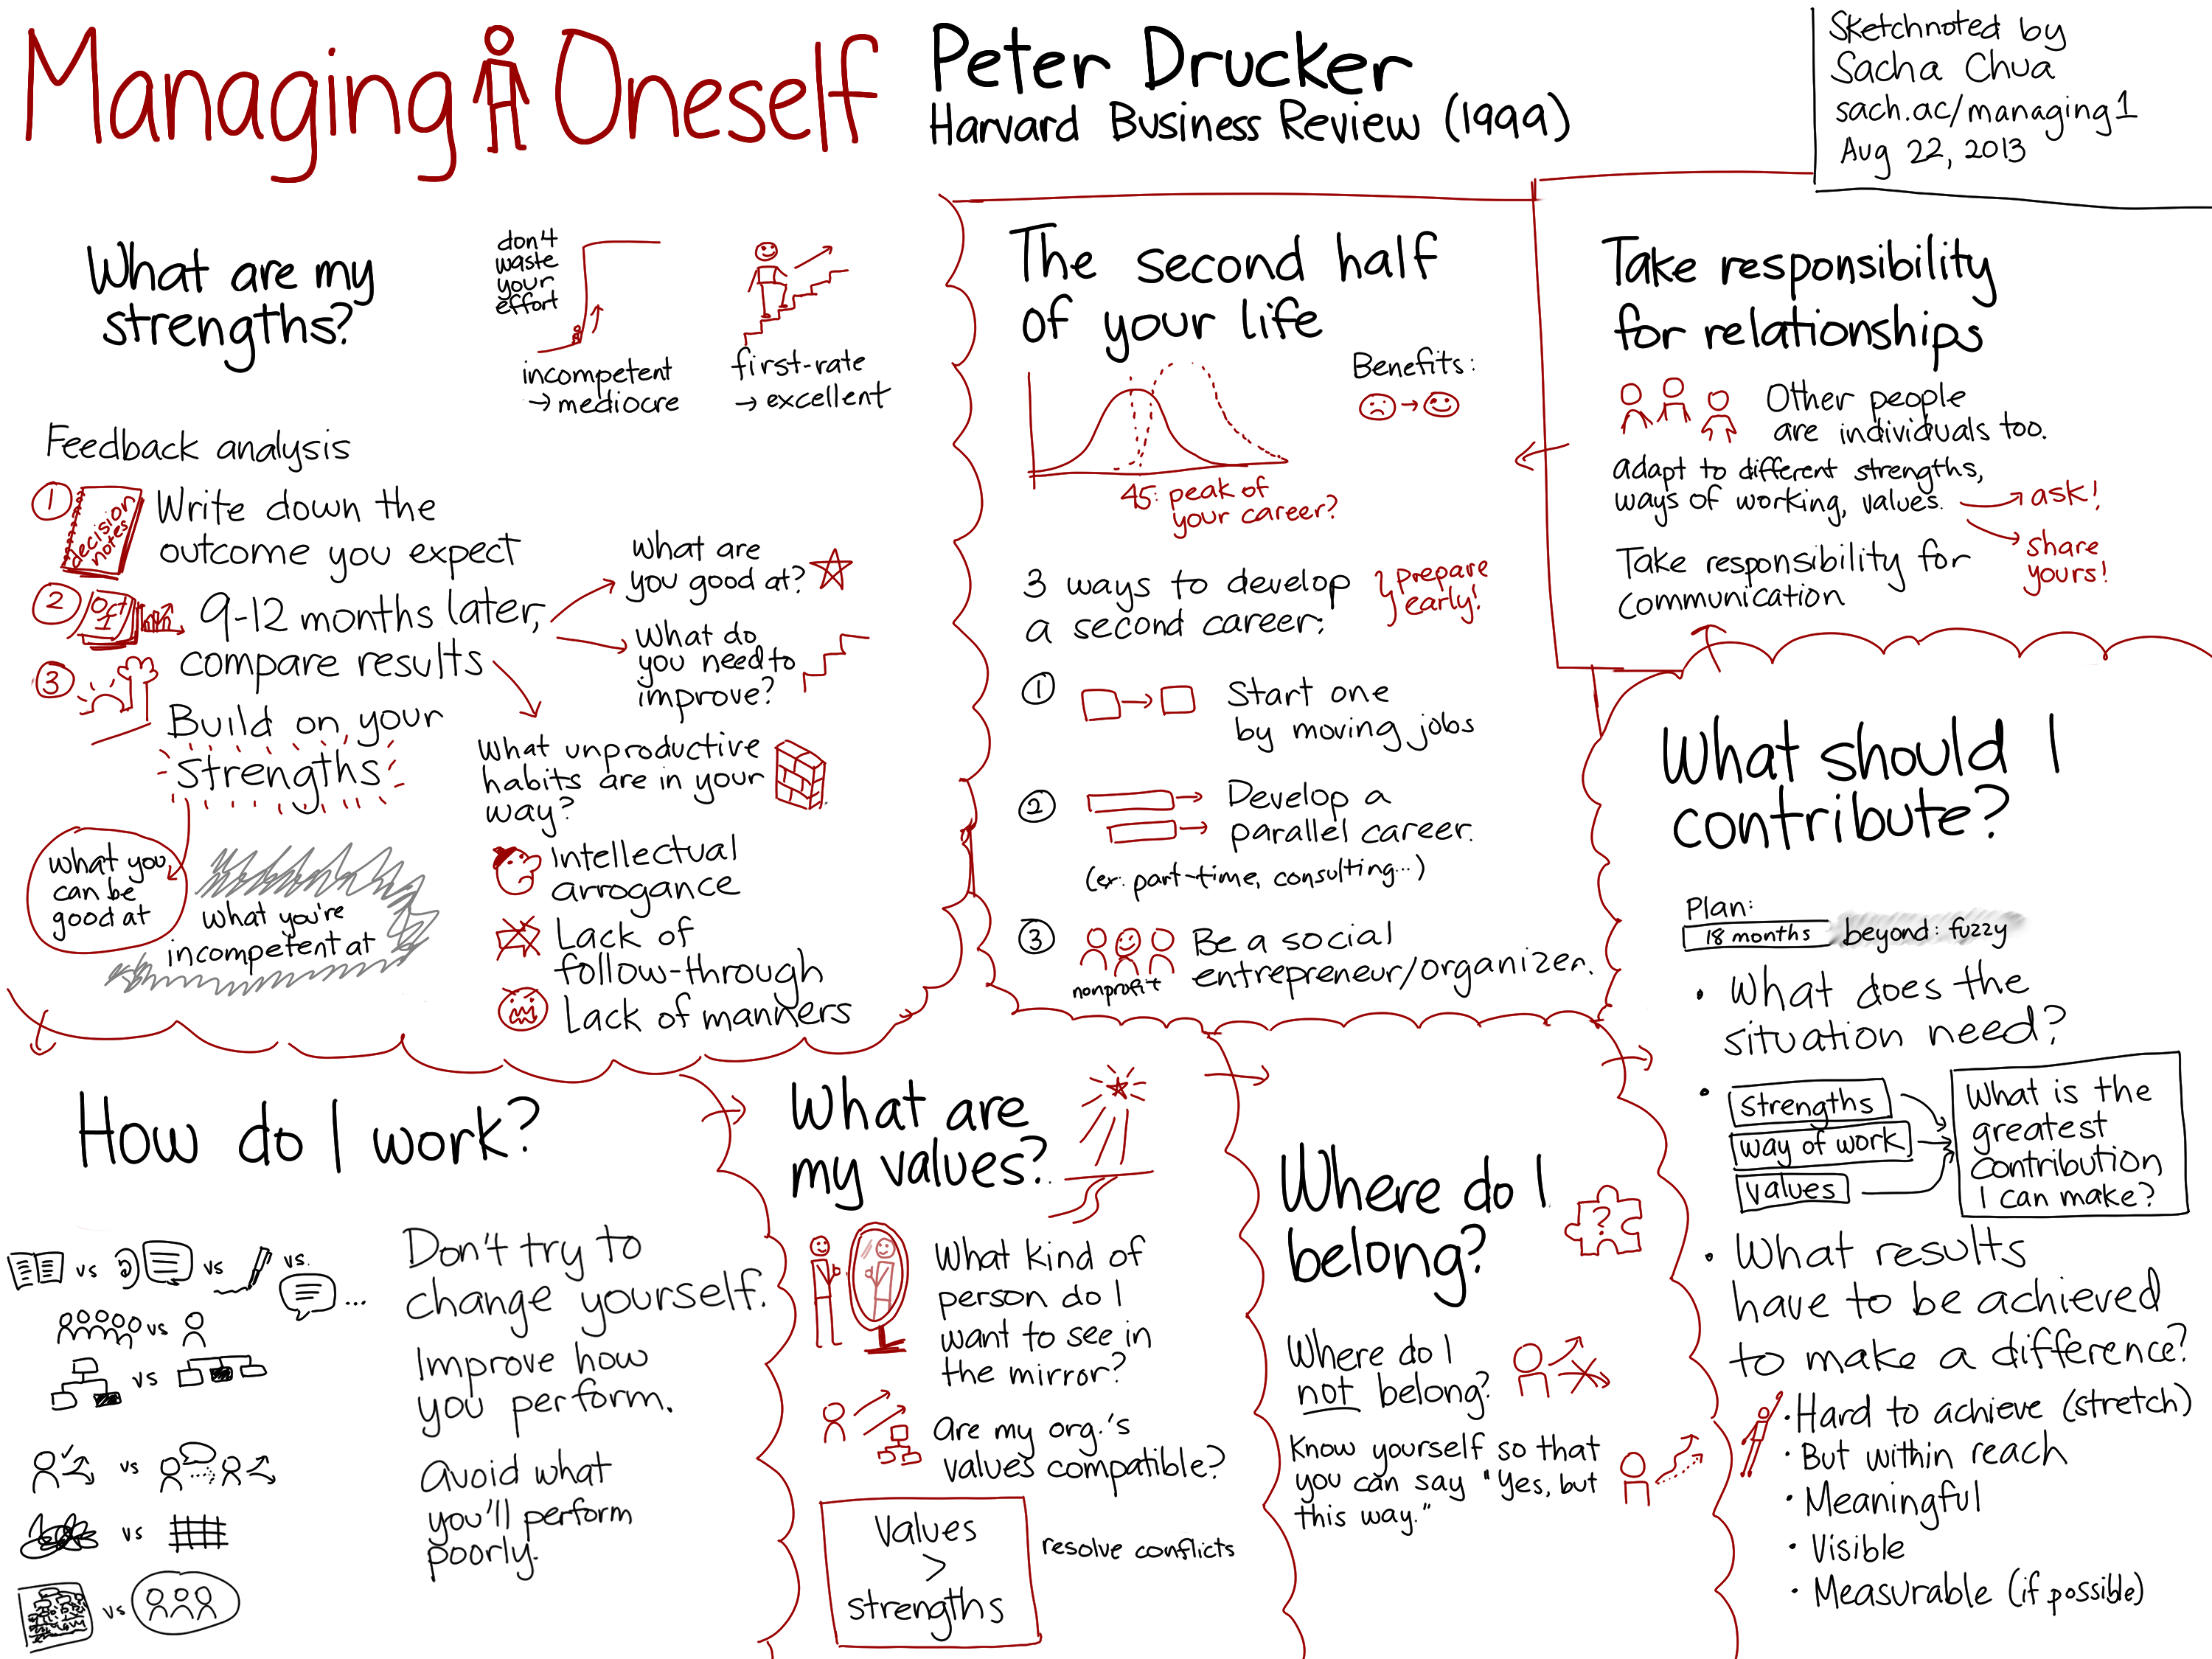 Managing Oneself
Peter Drucker
Harvard Business Review (1999)
Sketchnoted by
Sacha Chua
sach.ac/managing1
Aug 22, 2013
What are my
strengths?
don't
waste
your
effort
incompetent
→ mediocre
first-rate
→ excellent
Feedback analysis
1
decision
notes
Write down the
outcome you expect
2
Oct
1
9-12 months later,
compare results
What are
you good at?
What do
you need to
improve?
3
Build on your
strengths
what you
can be
good at
what you're
incompetent at
What unproductive
habits are in your
way?
Intellectual
arrogance
Lack of
follow-through
Lack of manners
How do I work?
vs vs vs. ...
vs
vs
vs
vs
vs
Don't try to
change yourself.
Improve how
you perform.
Avoid what
you'll perform
poorly.
What are
my values?
What kind of
person do I
want to see in
the mirror?
Are my org.'s
values compatible?
Values
>
strengths
resolve conflicts
Where do I
belong?
?
Where do I
not belong?
Know yourself so that
you can say "Yes, but
this way."
What should I
contribute?
Plan:
18 months
beyond: fuzzy
• What does the
situation need?
•
Strengths
way of work
values
What is the
greatest
contribution
I can make?
• What results
have to be achieved
to make a difference?
• Hard to achieve (stretch)
• But within reach
• Meaningful
• Visible
• Measurable (if possible)
Take responsibility
for relationships
Other people
are individuals too.
adapt to different strengths,
ways of working, values.
→ ask!
→ share
yours!
Take responsibility for
communication
The second half
of your life
Benefits:
→
45: peak of
your career?
3 ways to develop
a second career:
prepare
early!
1
Start one
by moving jobs
2
Develop a
parallel career.
(ex: part-time, consulting...)
3
nonprofit
Be a social
entrepreneur/organizer.